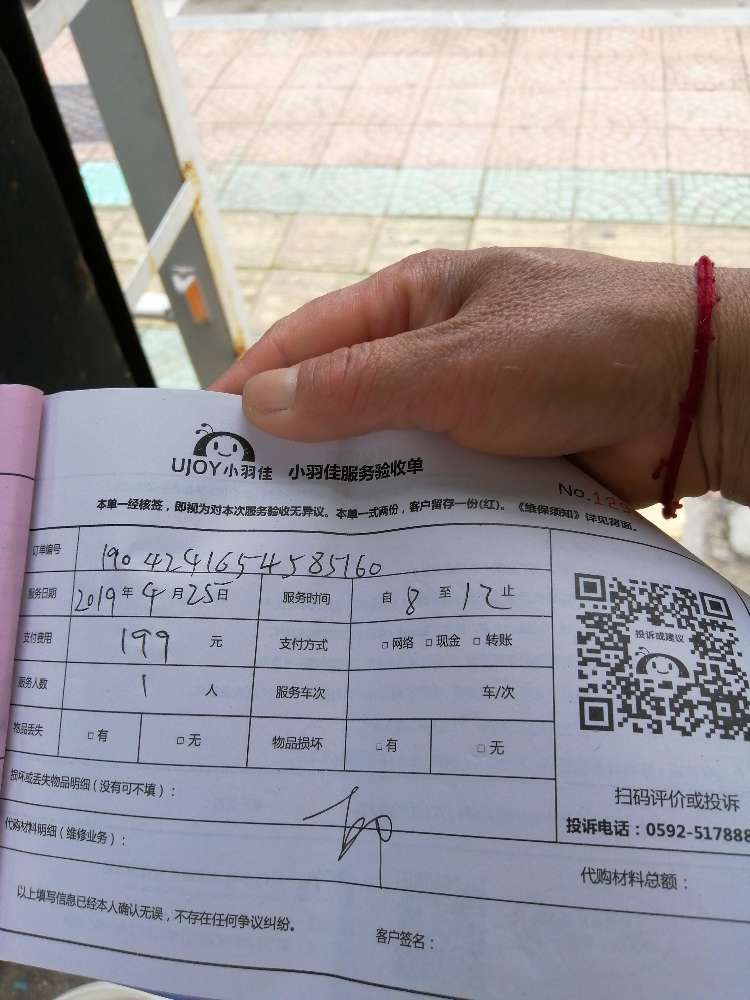 UJOY小羽佳 小羽佳服务验收单
No.129
本单一经核签，即视为对本次服务验收无异议。本单一式两份，客户留存一份(红)。《维保须知》详见背面。
订单编号 1904241654585160
服务日期 2019年4月25日 服务时间 自8至12止
支付费用 199元 支付方式 □网络 □现金 □转账
服务人数 1人 服务车次 车/次
物品丢失 □有 □无 物品损坏 □有 □无
投诉或建议
扫码评价或投诉
投诉电话：0592-517888
损坏或丢失物品明细（没有可不填）：
代购材料明细（维修业务）：
代购材料总额：
以上填写信息已经本人确认无误，不存在任何争议纠纷。
客户签名：